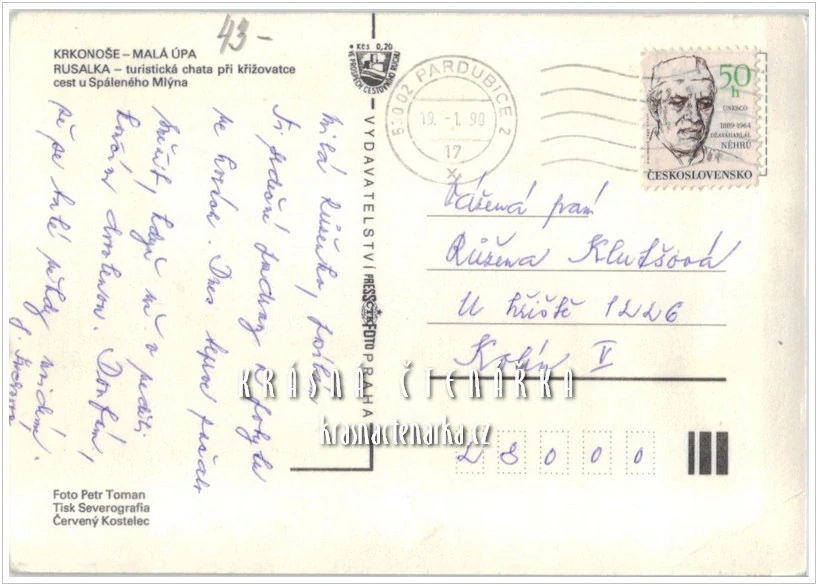 43-
KRKONOŠE – MALÁ ÚPA
RUSALKA – turistická chata při křižovatce
cest u Spáleného Mlýna
Kčs 0,20
VE PROSPĚCH CESTOVNÍHO RUCHU
VYDAVATELSTVÍ PRESSFOTO PRAHA
ČTK
530 02 PARDUBICE 2
19. -1. 90
17
x
50 h
UNESCO
1889-1964
DŽAVÁHARLÁL
NÉHRÚ
ČESKOSLOVENSKO
Milá Růženko,
Ti
z pobytu
na horách. Dnes
když
Doufám,
že se také někdy uvidíme.
Vážená paní
Růžena Klutsová
U hřiště 1226
Kolín V
28000
KRÁSNÁ ČTENÁRKA
krasnactenarka.cz
Foto Petr Toman
Tisk Severografia
Červený Kostelec